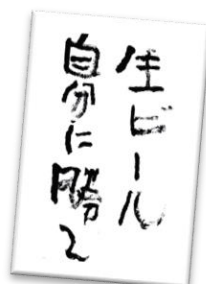 生ビール
自分に勝つ